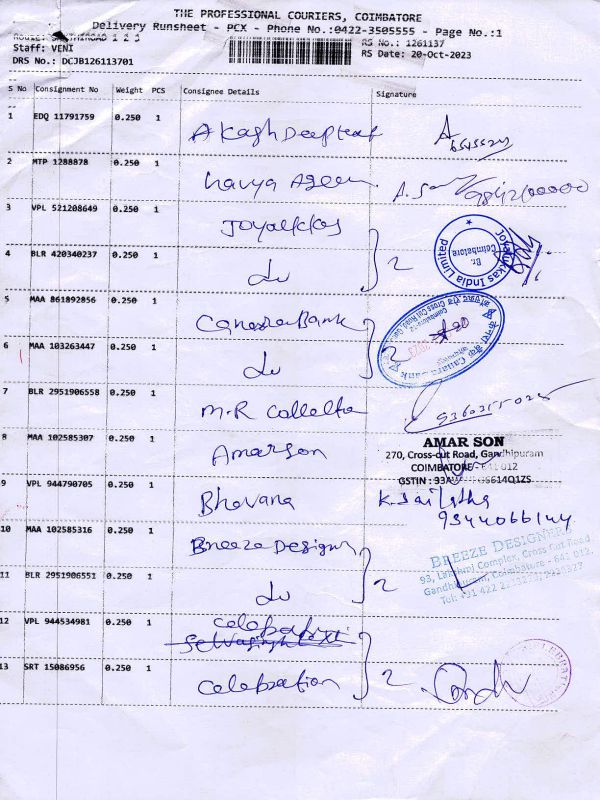 THE PROFESSIONAL COURIERS, COIMBATORE
Delivery Runsheet - PCX - Phone No.:0422-3505555 - Page No.:1
Staff: VENI
RS No.: 1261137
DRS No.: DCJB126113701
RS Date: 20-Oct-2023
S No Consignment No Weight PCS Consignee Details Signature
1 EDQ 11791759 0.250 1 Akash Deep
2 MTP 1288878 0.250 1 Navya
3 VPL 521208649 0.250 1 Joyalukkas
4 BLR 420340237 0.250 1 Do 2
Joyalukkas India Limited
Br. Coimbatore
5 MAA 861892856 0.250 1 Canara Bank
6 MAA 103263447 0.250 1 Do 2
केनरा बैंक Canara Bank
7 BLR 2951906558 0.250 1 M.R Collection 9360255025
8 MAA 102585307 0.250 1 Amarson
AMAR SON
270, Cross-cut Road, Gandhipuram
COIMBATORE - 641 012
GSTIN : 33A
9 VPL 944790705 0.250 1 Bhavana
9344066144
10 MAA 102585316 0.250 1 Breeze Designs
11 BLR 2951906551 0.250 1 Do 2
BREEZE DESIGNER
93, Complex, Cross Cut Road
Gandhipuram, Coimbatore - 641 012.
Tel: +91 422
12 VPL 944534981 0.250 1 Celebration
13 SRT 15086956 0.250 1 Celebration 2